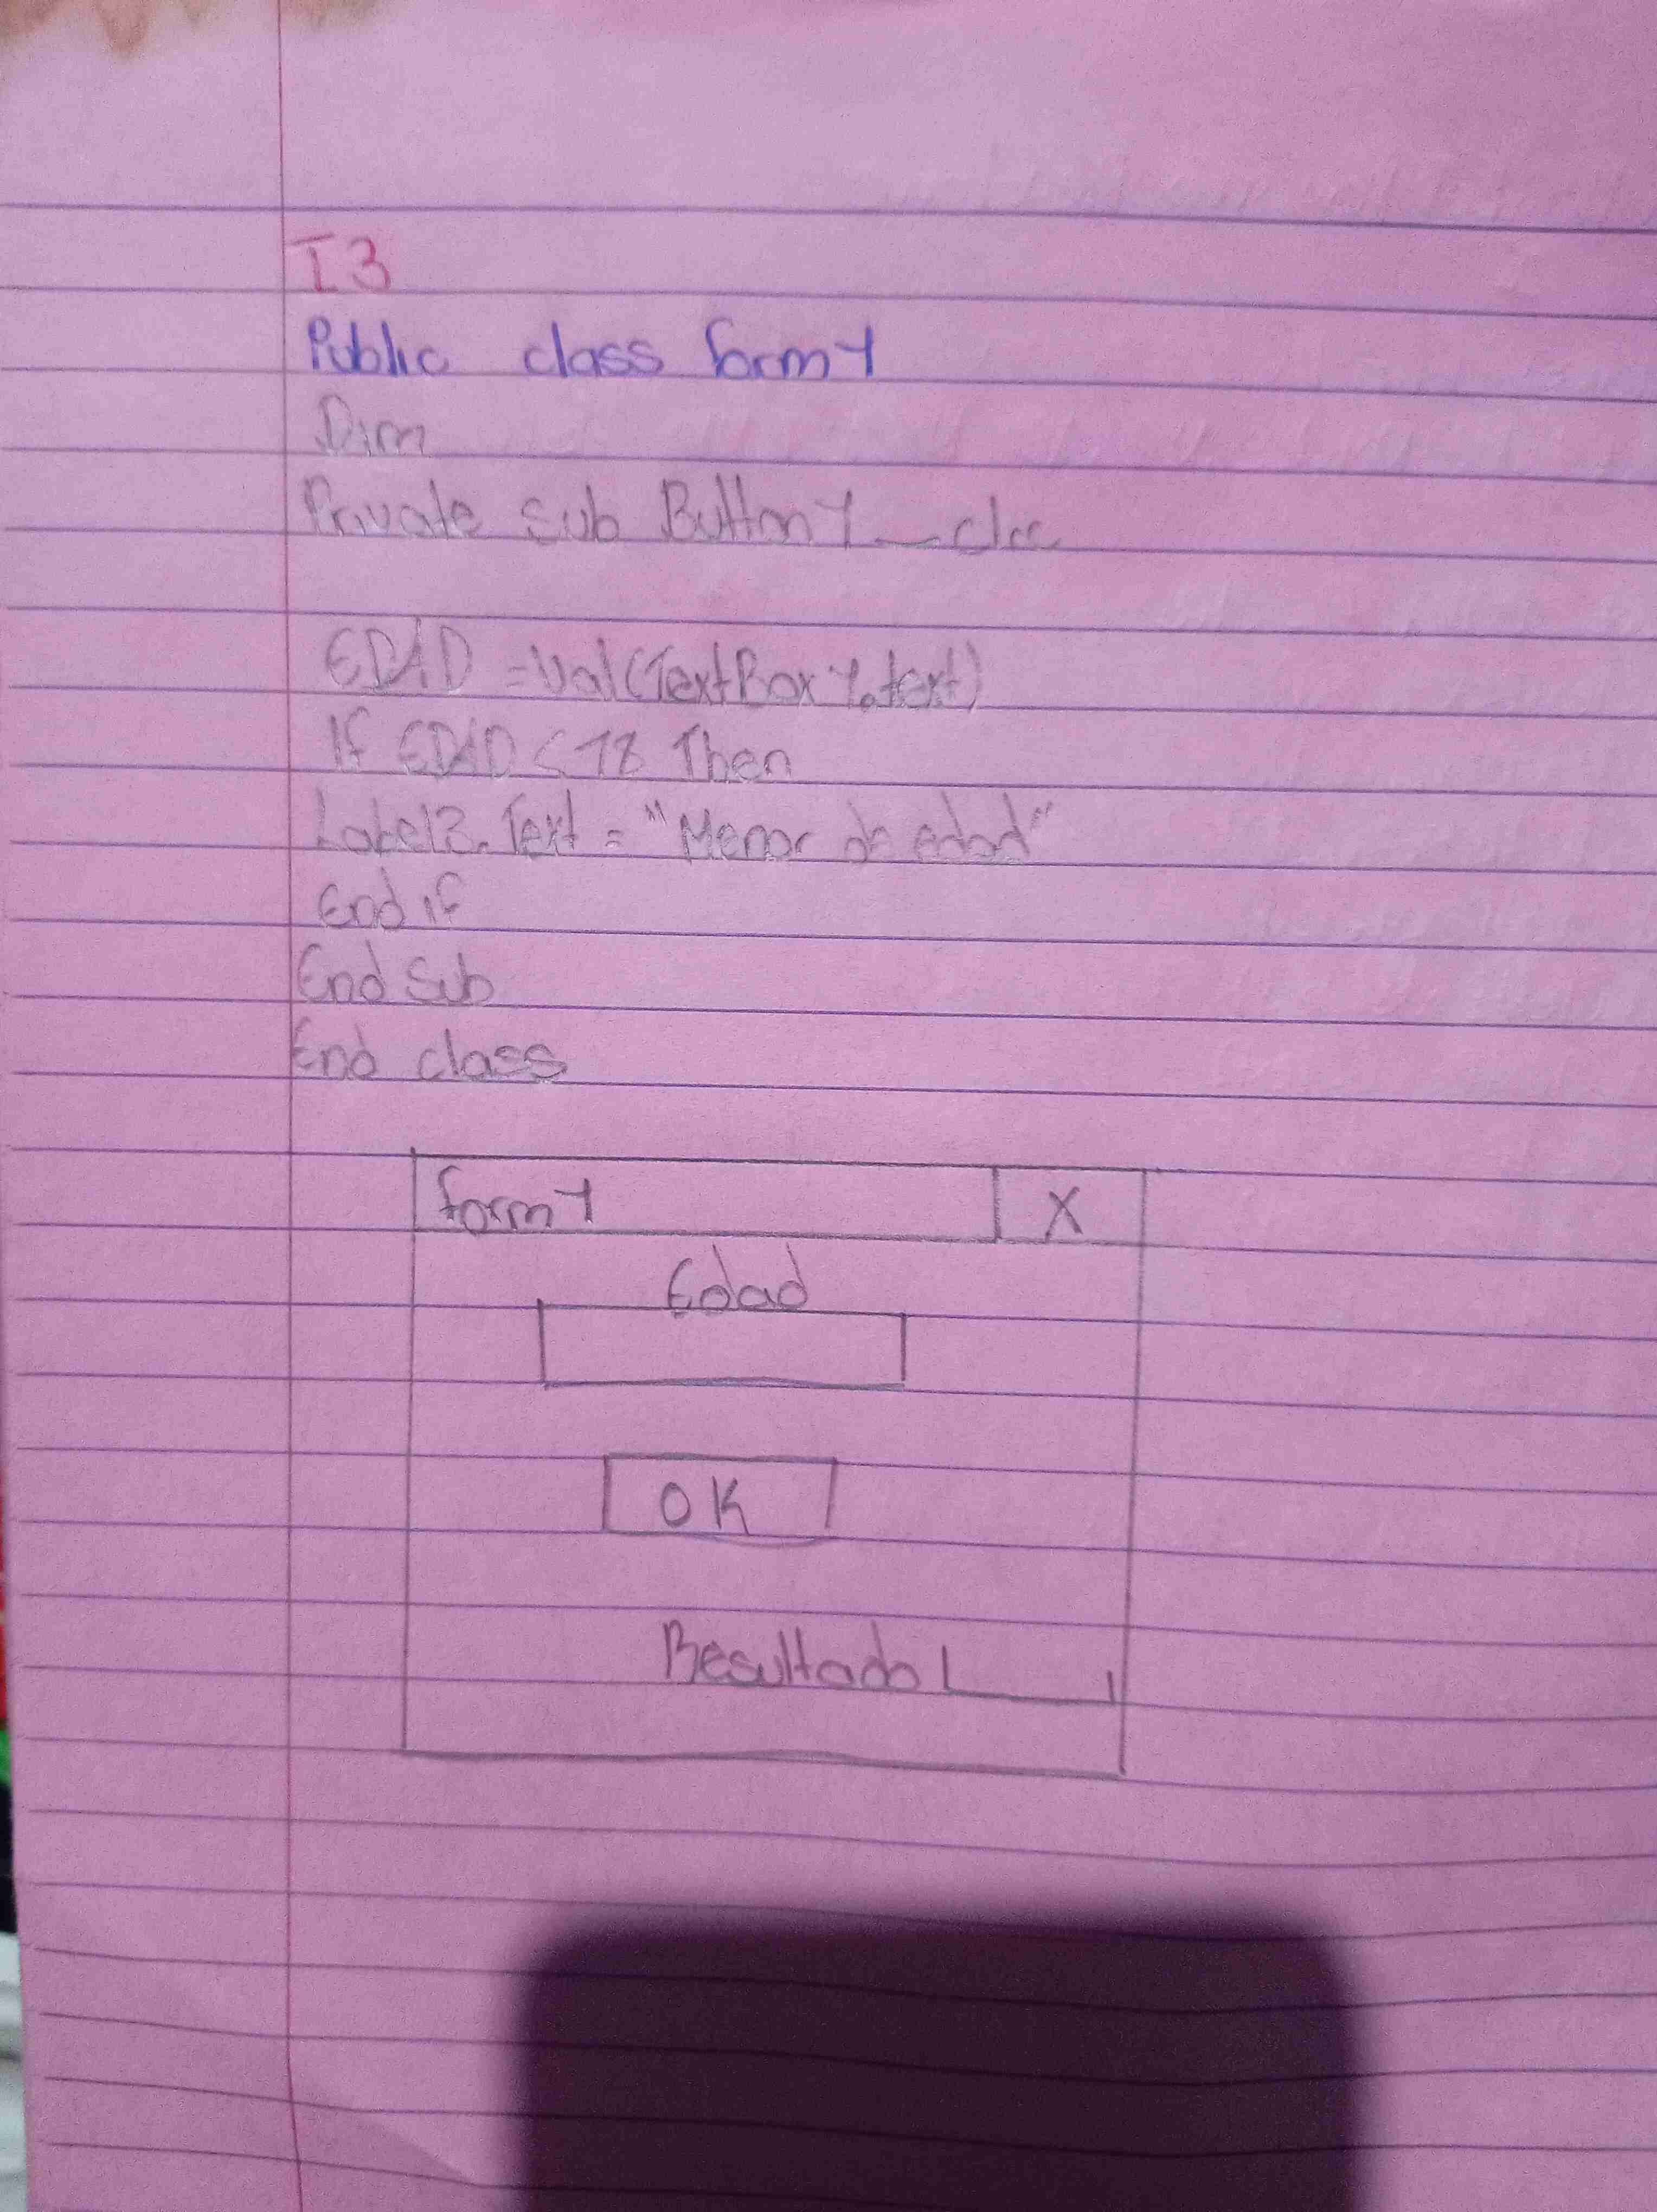 I3
Public class form1
Dim
Private sub Button1_clic
EDAD = Val(TextBox1.text)
If EDAD < 18 Then
Label2.Text = "Menor de edad"
End if
End Sub
End class
form1 X
Edad
OK
Resultado